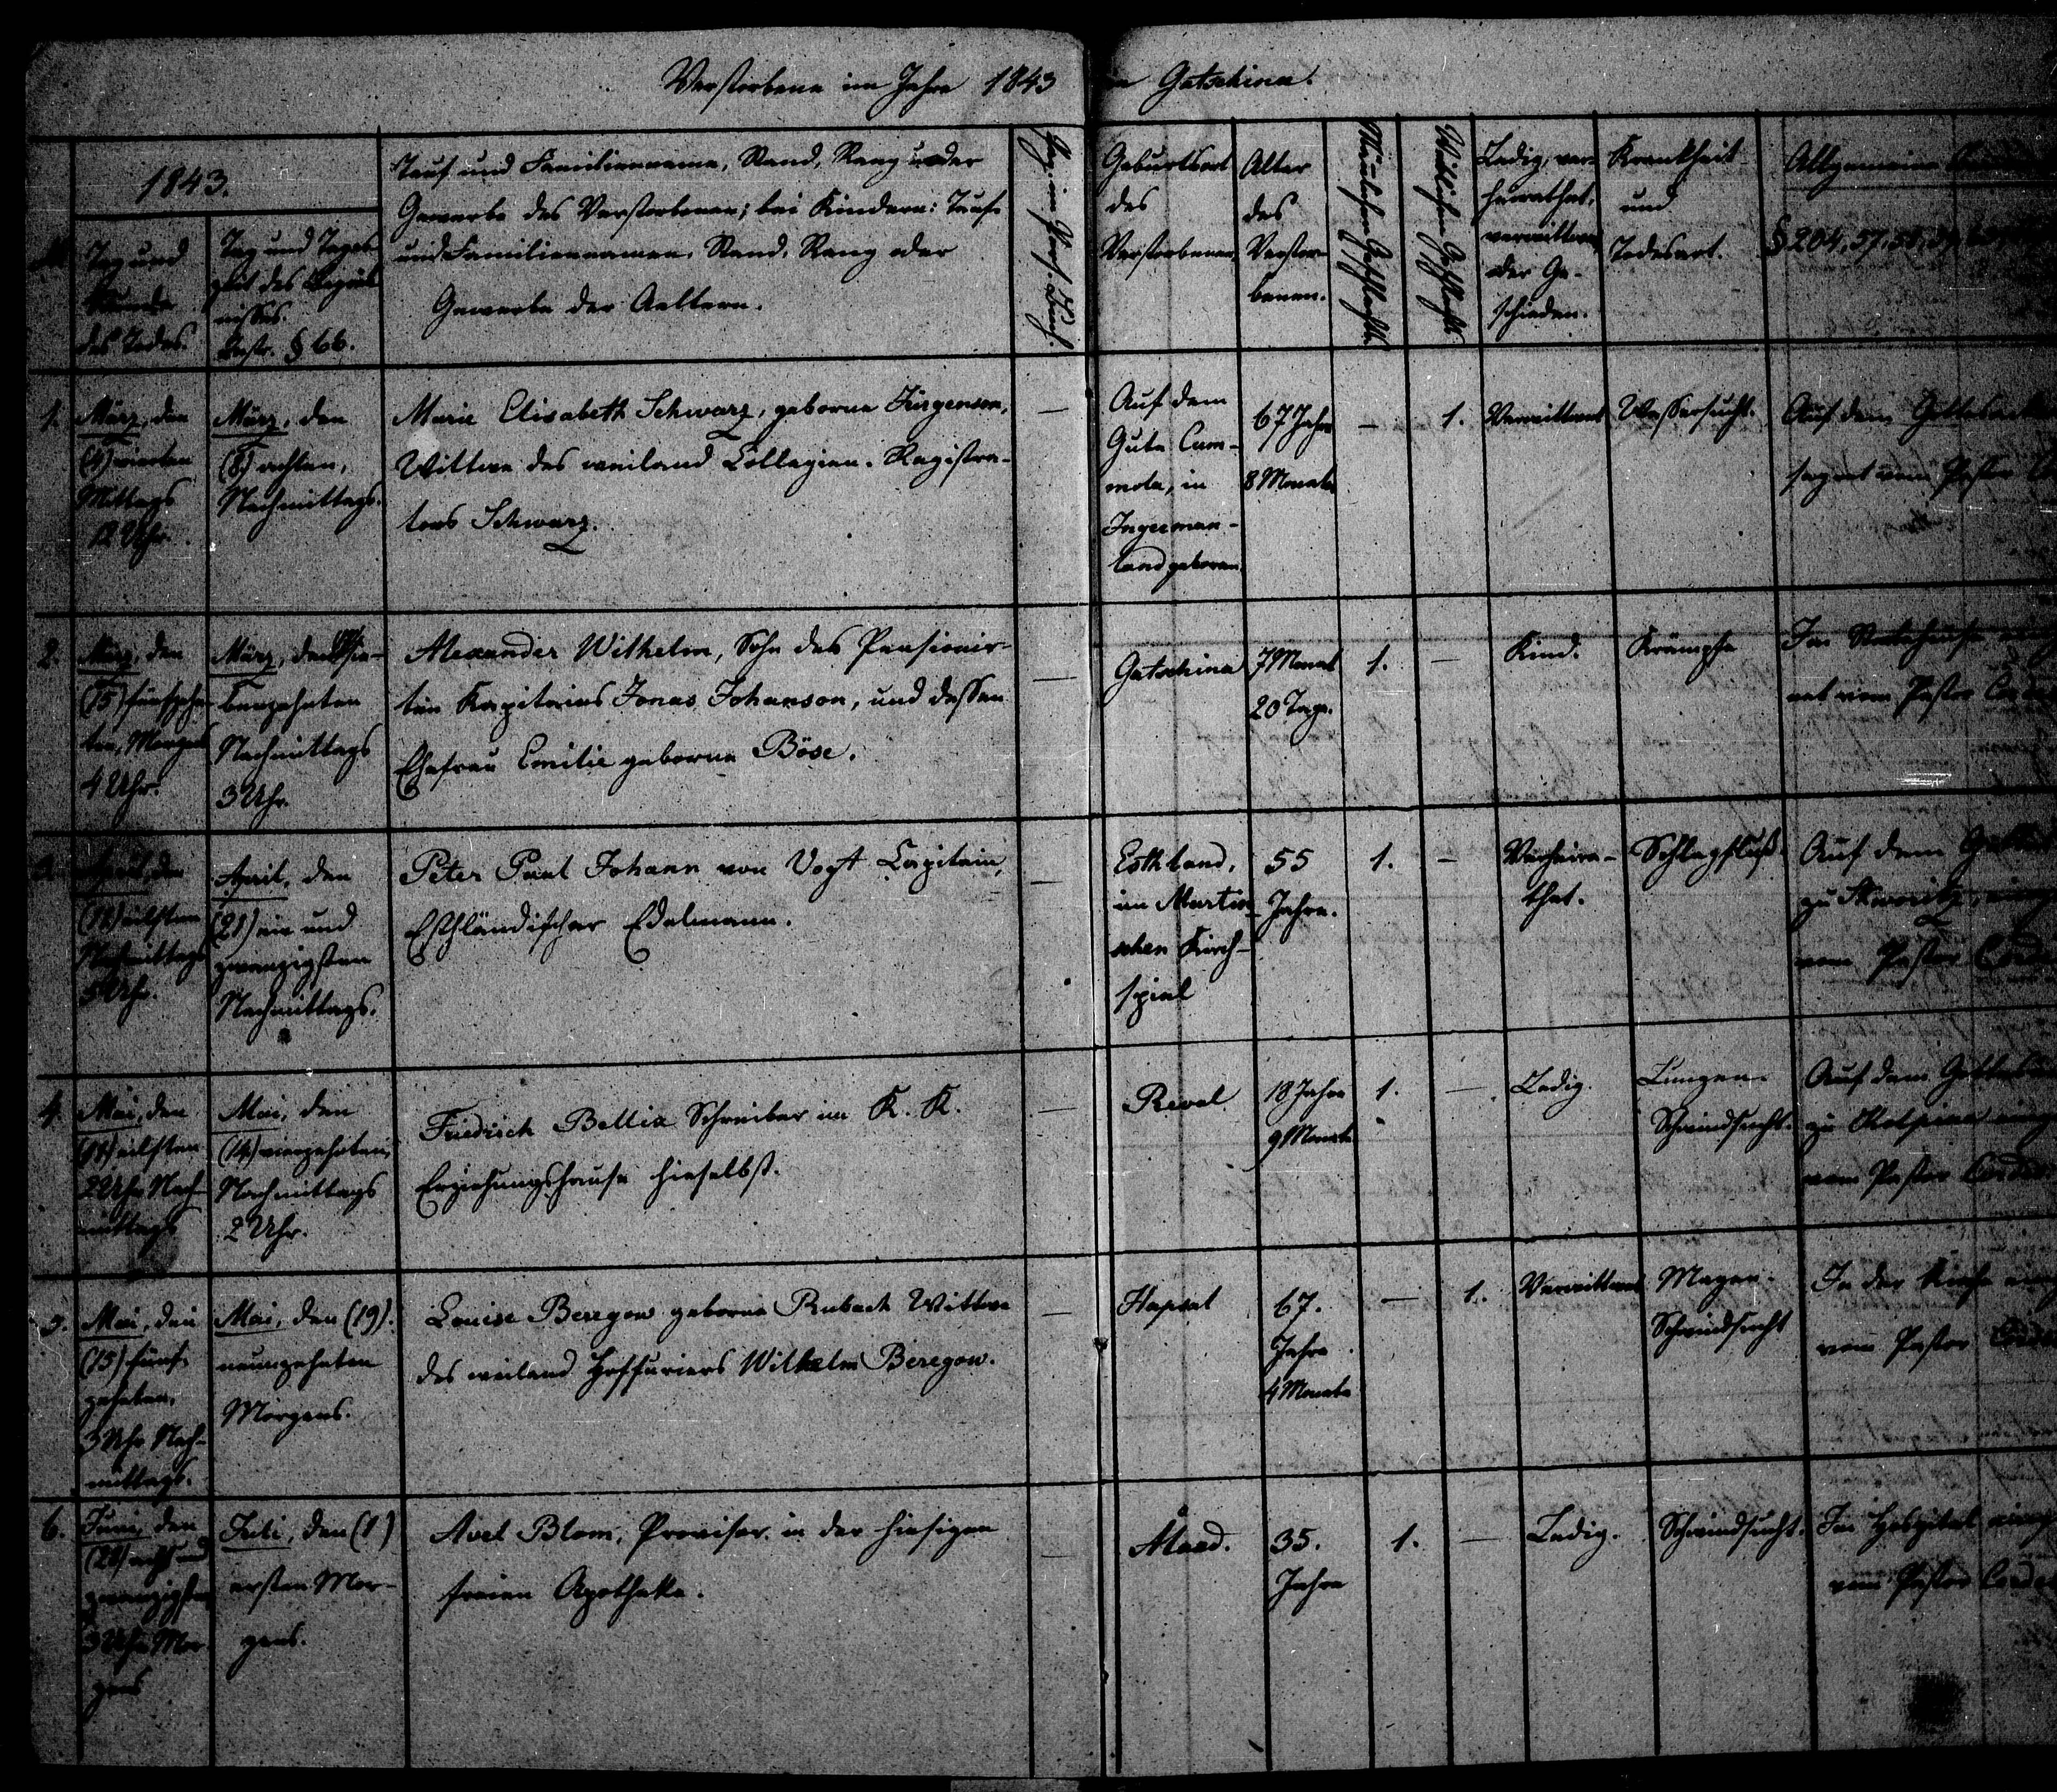 Verstorbene im Jahre 1843 Gatschina.
1843.
Tag und
Stunde
des Todes
Tag und Tages
zeit des Begräb
nisses.
§ 66.
Tauf und Familienname, Stand, Rang oder
Gewerbe des Verstorbenen; bei Kindern: Tauf
und Familiennamen, Stand, Rang oder
Gewerbe der Aeltern.
Geburtsort
des
Verstorbenen
Alter
des
Verstor-
benen.
Männlichen Geschlechts
Weiblichen Geschlechts
Ledig, ver-
heirathet,
verwittwet
oder Ge-
schieden.
Krankheit
und
Todesart.
Allgemeine
§ 204, 57, 58, 59
1. März, den
(4) vierten
Mittags
12 Uhr.
März, den
(8) achten,
Nachmittags.
Marie Elisabeth Schwarz, geborne Jürgenson,
Wittwe des weiland Collegien-Registra-
tors Schwarz.
—
Auf dem
Gute Cum-
mola, in
Ingerman-
land geboren.
67 Jahre
8 Monate
—
1.
Verwittwet
Wassersucht.
Auf dem
vom Pastor
2. März, den
(15) fünfzehn-
ten, Morgens
4 Uhr.
März, den sie-
benzehnten
Nachmittags
3 Uhr.
Alexander Wilhelm, Sohn des Pensionir-
ten Kapitains Jonas Johanson, und dessen
Ehefrau Emilie geborne Böse.
—
Gatschina
7 Monat
20 Tage.
1.
—
Kind.
Krämpfe
Im
vom Pastor
3. April, den
eilften
Nachmittags
5 Uhr.
April, den
(21) ein und
zwanzigsten
Nachmittags.
Peter Paul Johann von Vogt Capitain,
Esthländischer Edelmann.
—
Esthland,
im Martin-
schen Kirch-
spiel
55
Jahre.
1.
—
Verheira-
thet.
Schlagfluß.
Auf dem
zu Skworitz,
vom Pastor
4. Mai, den
(11) eilften
2 Uhr Nach-
mittags
Mai, den
(14) vierzehnten,
Nachmittags
2 Uhr.
Friedrich Bellia Schreiber im K. K.
Erziehungshause hieselbst.
—
Reval
18 Jahre
9 Monate
1.
—
Ledig.
Lungen-
Schwindsucht.
Auf dem
zu Kolpina
vom Pastor
5. Mai, den
(15) fünf-
zehnten,
3 Uhr Nach-
mittags.
Mai, den (19).
neunzehnten
Morgens.
Louise Beregow geborne Rubach Wittwe
des weiland Hoffuriers Wilhelm Beregow.
—
Hapsal
67.
Jahre
4 Monate
—
1.
Verwittwet
Magen-
Schwindsucht
In der Kirche
vom Pastor
6. Juni, den
(28) acht und
zwanzigsten
3 Uhr Mor-
gens
Juli, den (1)
ersten Mor-
gens.
Axel Blom, Provisor in der hiesigen
freien Apotheke.
—
Åland.
35.
Jahre
1.
—
Ledig.
Schwindsucht.
Im Hospital
vom Pastor